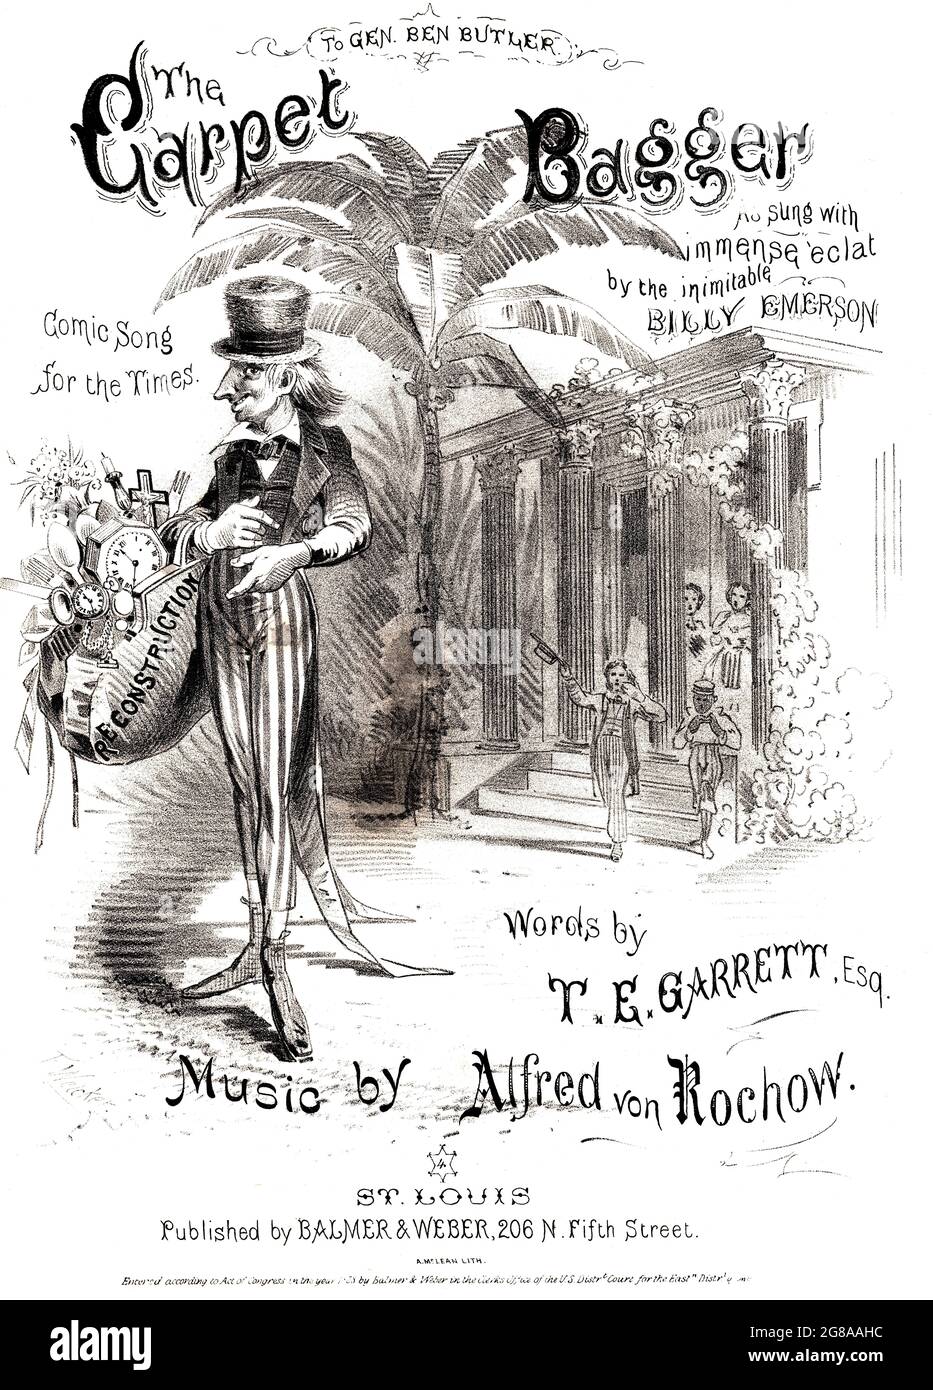 To GEN. BEN BUTLER.
The
Carpet Bagger
As sung with
immense eclat
by the inimitable
BILLY EMERSON
Comic Song
for the Times.
RECONSTRUCTION
Words by
T. E. GARRETT, Esq.
Music by Alfred von Rochow.
4.
ST. LOUIS
Published by BALMER & WEBER, 206 N. Fifth Street.
A. McLEAN LITH.
Entered according to Act of Congress in the year by Balmer & Weber in the Clerks Office of the U.S. Distrt Court for the Eastn Distr
alamy
alamy
Image ID: 2G8AAHC
www.alamy.com